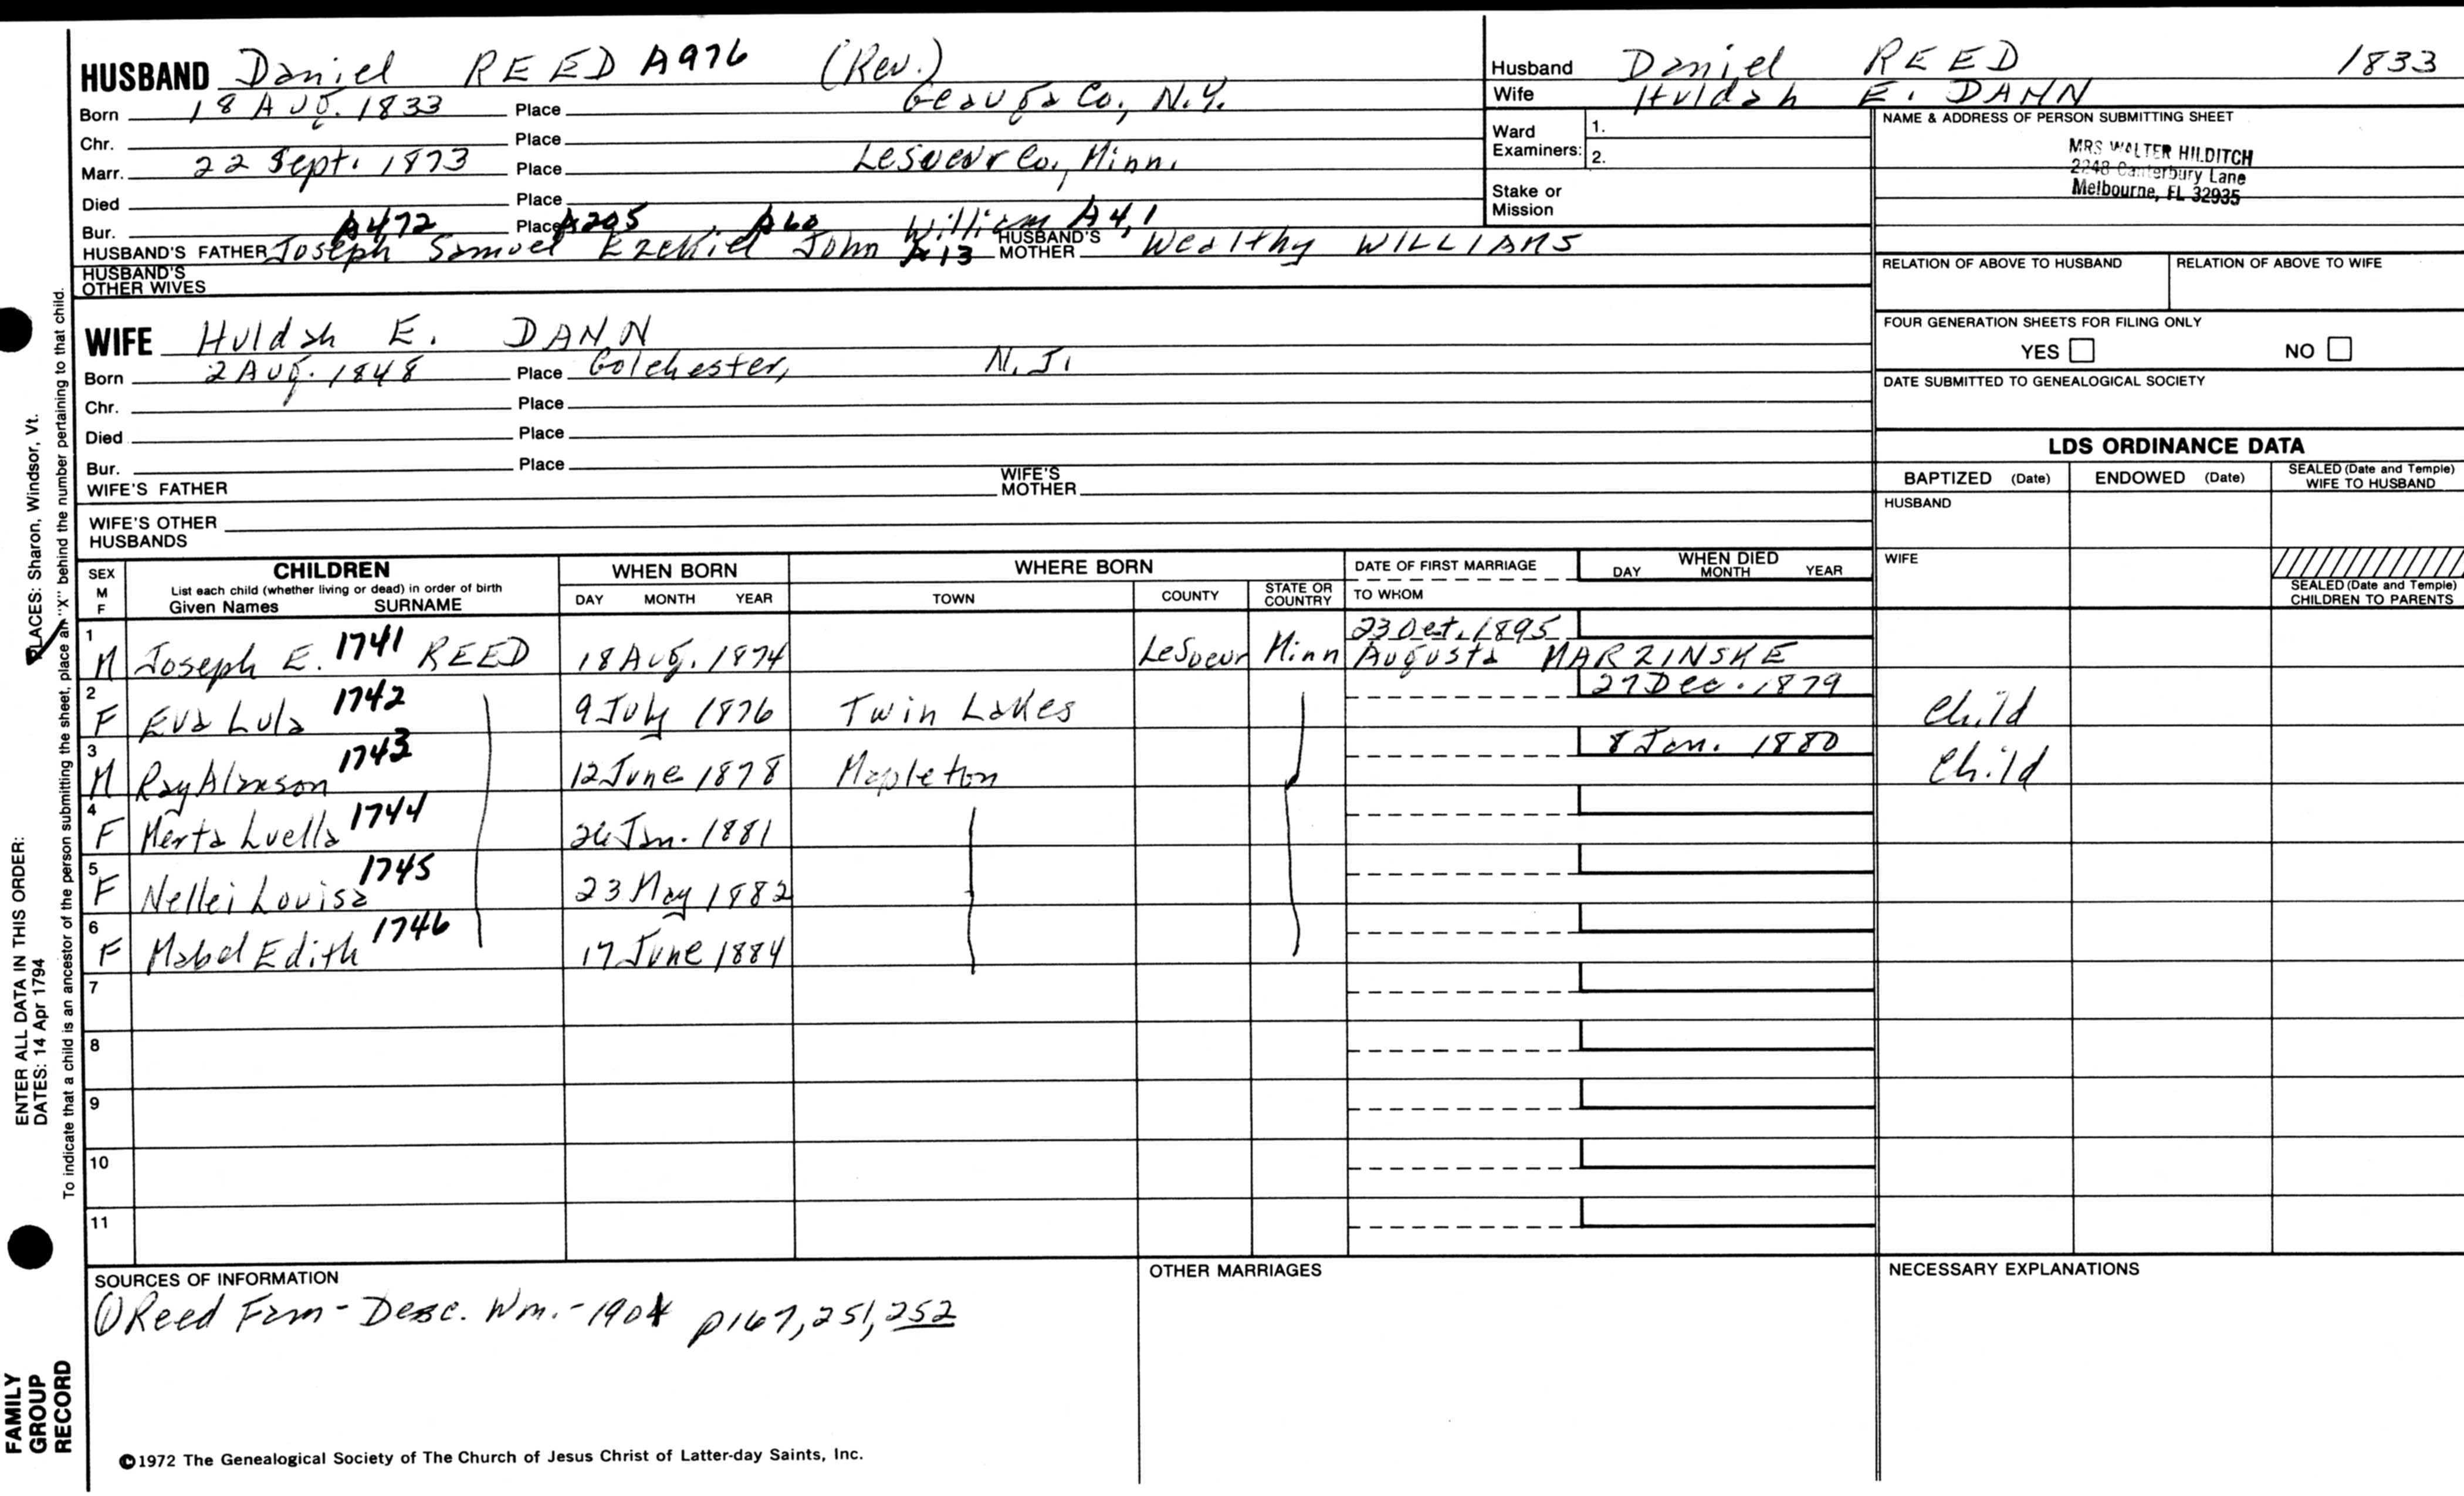 HUSBAND Daniel REED A976 (Rev.)
Born 18 Aug. 1833 Place Geauga Co, N.Y.
Chr. Place
Marr. 22 Sept. 1873 Place LeSueur Co., Minn.
Died Place
Bur. Place
A472 A205 A60 William A4,1
HUSBAND'S FATHER Joseph Samuel Ezekiel John A13 HUSBAND'S MOTHER Wealthy WILLIAMS
HUSBAND'S OTHER WIVES
WIFE Huldah E. DANN
Born 2 Aug. 1848 Place Colchester, N.J.
Chr. Place
Died Place
Bur. Place
WIFE'S FATHER WIFE'S MOTHER
WIFE'S OTHER HUSBANDS
Husband Daniel REED 1833
Wife Huldah E. DANN
Ward Examiners: 1.
2.
Stake or Mission
NAME & ADDRESS OF PERSON SUBMITTING SHEET
MRS WALTER HILDITCH
2248 Canterbury Lane
Melbourne, FL 32935
RELATION OF ABOVE TO HUSBAND RELATION OF ABOVE TO WIFE
FOUR GENERATION SHEETS FOR FILING ONLY
YES NO
DATE SUBMITTED TO GENEALOGICAL SOCIETY
LDS ORDINANCE DATA
BAPTIZED (Date) ENDOWED (Date) SEALED (Date and Temple) WIFE TO HUSBAND
HUSBAND
WIFE
SEALED (Date and Temple) CHILDREN TO PARENTS
SEX M F
CHILDREN
List each child (whether living or dead) in order of birth
Given Names SURNAME
WHEN BORN
DAY MONTH YEAR
WHERE BORN
TOWN COUNTY STATE OR COUNTRY
DATE OF FIRST MARRIAGE
TO WHOM
WHEN DIED
DAY MONTH YEAR
1 M Joseph E. 1741 REED 18 Aug. 1874 LeSueur Minn 23 Oct. 1895 Augusta MARZINSKE
2 F Eva Lula 1742 9 July 1876 Twin Lakes 27 Dec. 1879 Child
3 M Ray Alanson 1743 12 June 1878 Mapleton 8 Jan. 1880 Child
4 F Merta Luella 1744 26 Jan. 1881
5 F Nellei Louisa 1745 23 May 1882
6 F Mabel Edith 1746 17 June 1884
7
8
9
10
11
SOURCES OF INFORMATION
① Reed Fam - Desc. Wm. - 1901 p167, 251, 252
OTHER MARRIAGES
NECESSARY EXPLANATIONS
©1972 The Genealogical Society of The Church of Jesus Christ of Latter-day Saints, Inc.
FAMILY GROUP RECORD
ENTER ALL DATA IN THIS ORDER:
DATES: 14 Apr 1794
PLACES: Sharon, Windsor, Vt.
To indicate that a child is an ancestor of the person submitting the sheet, place an "X" behind the number pertaining to that child.